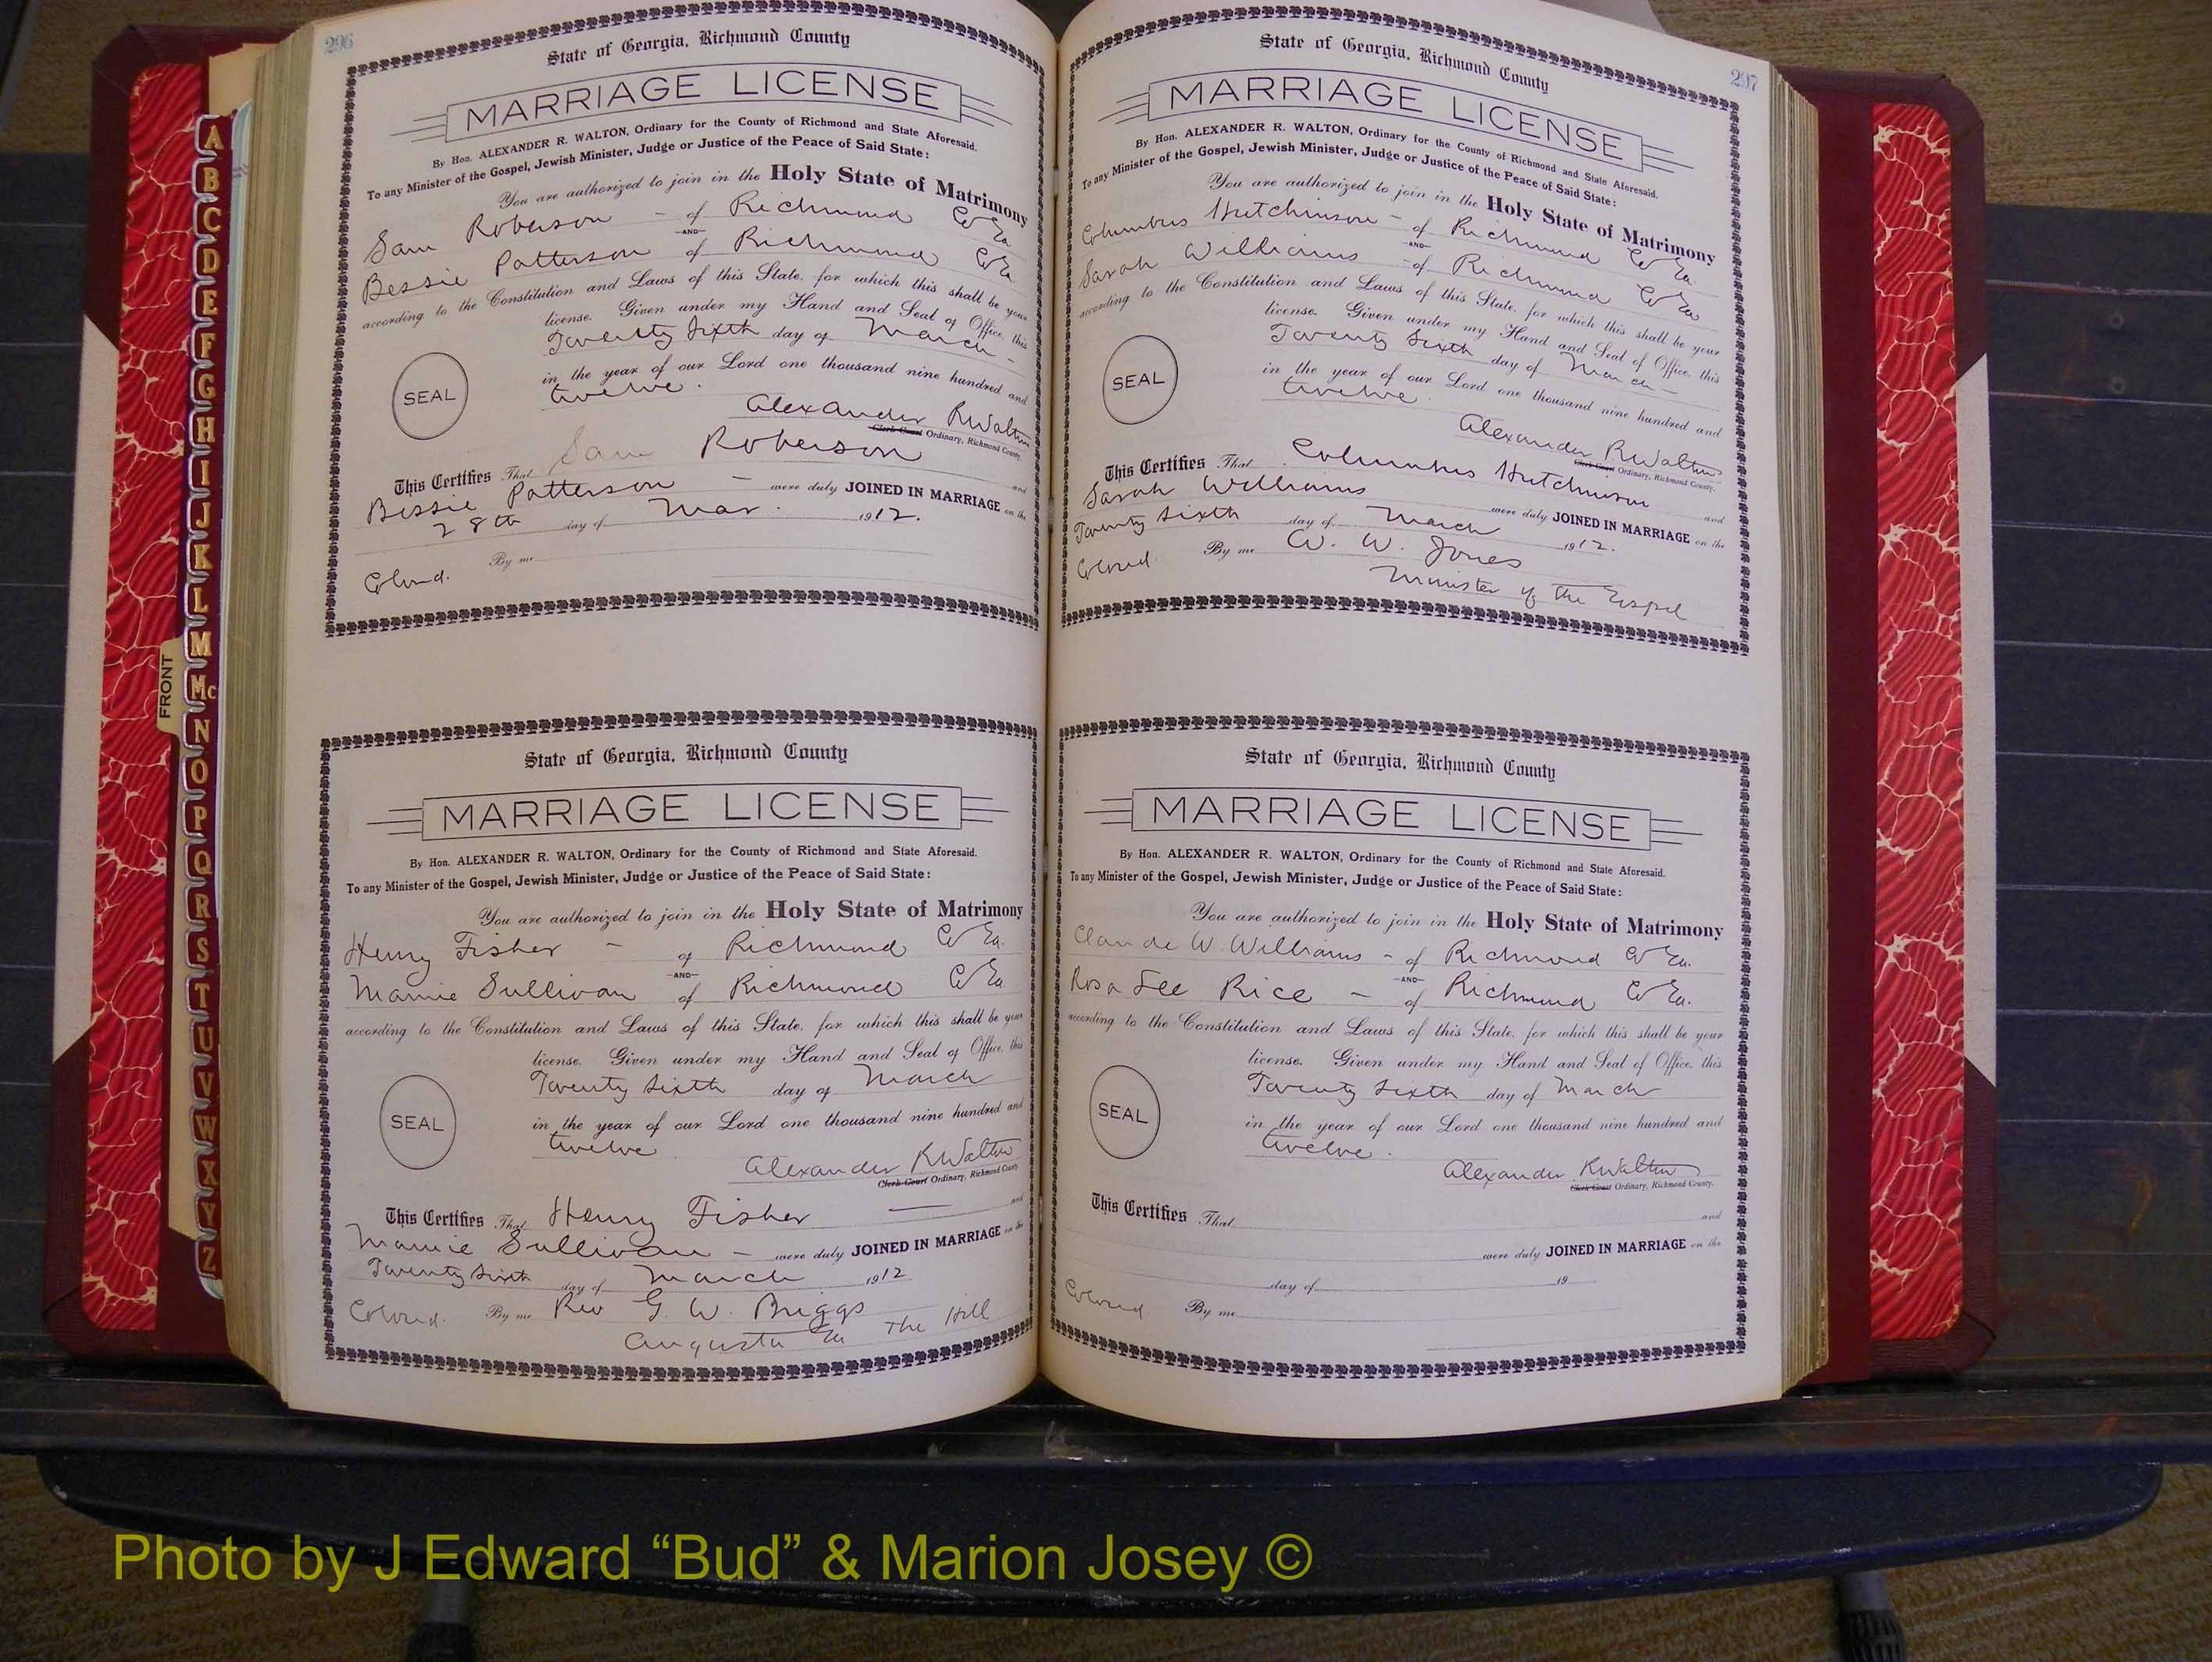 296
State of Georgia, Richmond County
MARRIAGE LICENSE
By Hon. ALEXANDER R. WALTON, Ordinary for the County of Richmond and State Aforesaid.
To any Minister of the Gospel, Jewish Minister, Judge or Justice of the Peace of Said State:
You are authorized to join in the Holy State of Matrimony
Sam Roberson - of Richmond Co Ga.
-AND-
Bessie Patterson of Richmond Co Ga.
according to the Constitution and Laws of this State, for which this shall be your
license. Given under my Hand and Seal of Office, this
Twenty Sixth day of March -
in the year of our Lord one thousand nine hundred and
SEAL
twelve.
Alexander R Walton
Clerk Court Ordinary, Richmond County.
This Certifies That Sam Roberson and
Bessie Patterson - were duly JOINED IN MARRIAGE on the
28th day of Mar. 1912.
Colored. By me
State of Georgia, Richmond County
MARRIAGE LICENSE
By Hon. ALEXANDER R. WALTON, Ordinary for the County of Richmond and State Aforesaid.
To any Minister of the Gospel, Jewish Minister, Judge or Justice of the Peace of Said State:
You are authorized to join in the Holy State of Matrimony
Henry Fisher - of Richmond Co Ga.
-AND-
Mamie Sullivan of Richmond Co Ga
according to the Constitution and Laws of this State, for which this shall be your
license. Given under my Hand and Seal of Office, this
Twenty Sixth day of March
in the year of our Lord one thousand nine hundred and
SEAL
twelve
Alexander R Walton
Clerk Court Ordinary, Richmond County
This Certifies That Henry Fisher — and
Mamie Sullivan - were duly JOINED IN MARRIAGE on the
Twenty Sixth day of March 1912
Colored. By me Rev G. W. Briggs
Augusta Ga The Hill
297
State of Georgia, Richmond County
MARRIAGE LICENSE
By Hon. ALEXANDER R. WALTON, Ordinary for the County of Richmond and State Aforesaid.
To any Minister of the Gospel, Jewish Minister, Judge or Justice of the Peace of Said State:
You are authorized to join in the Holy State of Matrimony
Columbus Hutchinson - of Richmond Co Ga.
-AND-
Sarah Williams - of Richmond Co Ga
according to the Constitution and Laws of this State, for which this shall be your
license. Given under my Hand and Seal of Office, this
Twenty Sixth day of March -
in the year of our Lord one thousand nine hundred and
SEAL
twelve.
Alexander R Walton
Clerk Court Ordinary, Richmond County.
This Certifies That Columbus Hutchinson and
Sarah Williams were duly JOINED IN MARRIAGE on the
Twenty Sixth day of March 1912.
Colored. By me W. W. Jones
Minister of the Gospel
State of Georgia, Richmond County
MARRIAGE LICENSE
By Hon. ALEXANDER R. WALTON, Ordinary for the County of Richmond and State Aforesaid.
To any Minister of the Gospel, Jewish Minister, Judge or Justice of the Peace of Said State:
You are authorized to join in the Holy State of Matrimony
Claude W. Williams - of Richmond Co Ga.
-AND-
Rosa Lee Rice - of Richmond Co Ga.
according to the Constitution and Laws of this State, for which this shall be your
license. Given under my Hand and Seal of Office, this
Twenty Sixth day of March
in the year of our Lord one thousand nine hundred and
SEAL
twelve.
Alexander R Walton
Clerk Court Ordinary, Richmond County.
This Certifies That and
were duly JOINED IN MARRIAGE on the
day of 19
Colored. By me
A
B
C
D
E
F
G
H
I
J
K
L
M
Mc
N
O
P
Q
R
S
T
U
V
W
X
Y
Z
FRONT
Photo by J Edward “Bud” & Marion Josey ©